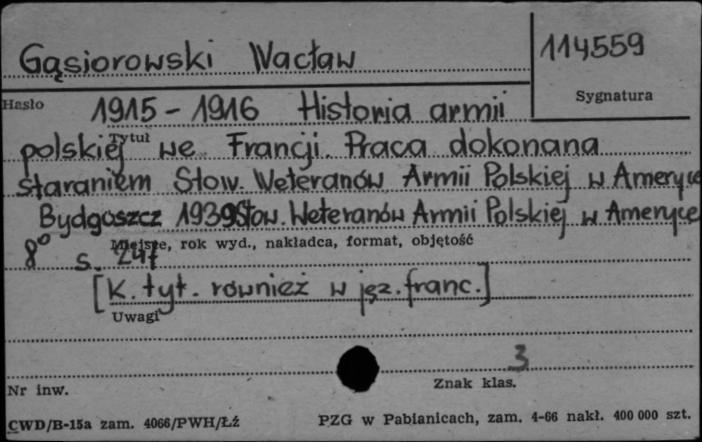 Gąsiorowski Wacław
114559
Hasło
Sygnatura
1915 - 1916 Historia armii
Tytuł
polskiej we Francji. Praca dokonana
staraniem Stow. Weteranów Armii Polskiej w Ameryce
Bydgoszcz 1939 Stow. Weteranów Armii Polskiej w Ameryce
Miejsce, rok wyd., nakładca, format, objętość
8° s. 247
[K. tyt. również w jęz. franc.]
Uwagi
3
Nr inw.
Znak klas.
CWD/B-15a zam. 4066/PWH/ŁŹ
PZG w Pabianicach, zam. 4-66 nakł. 400 000 szt.